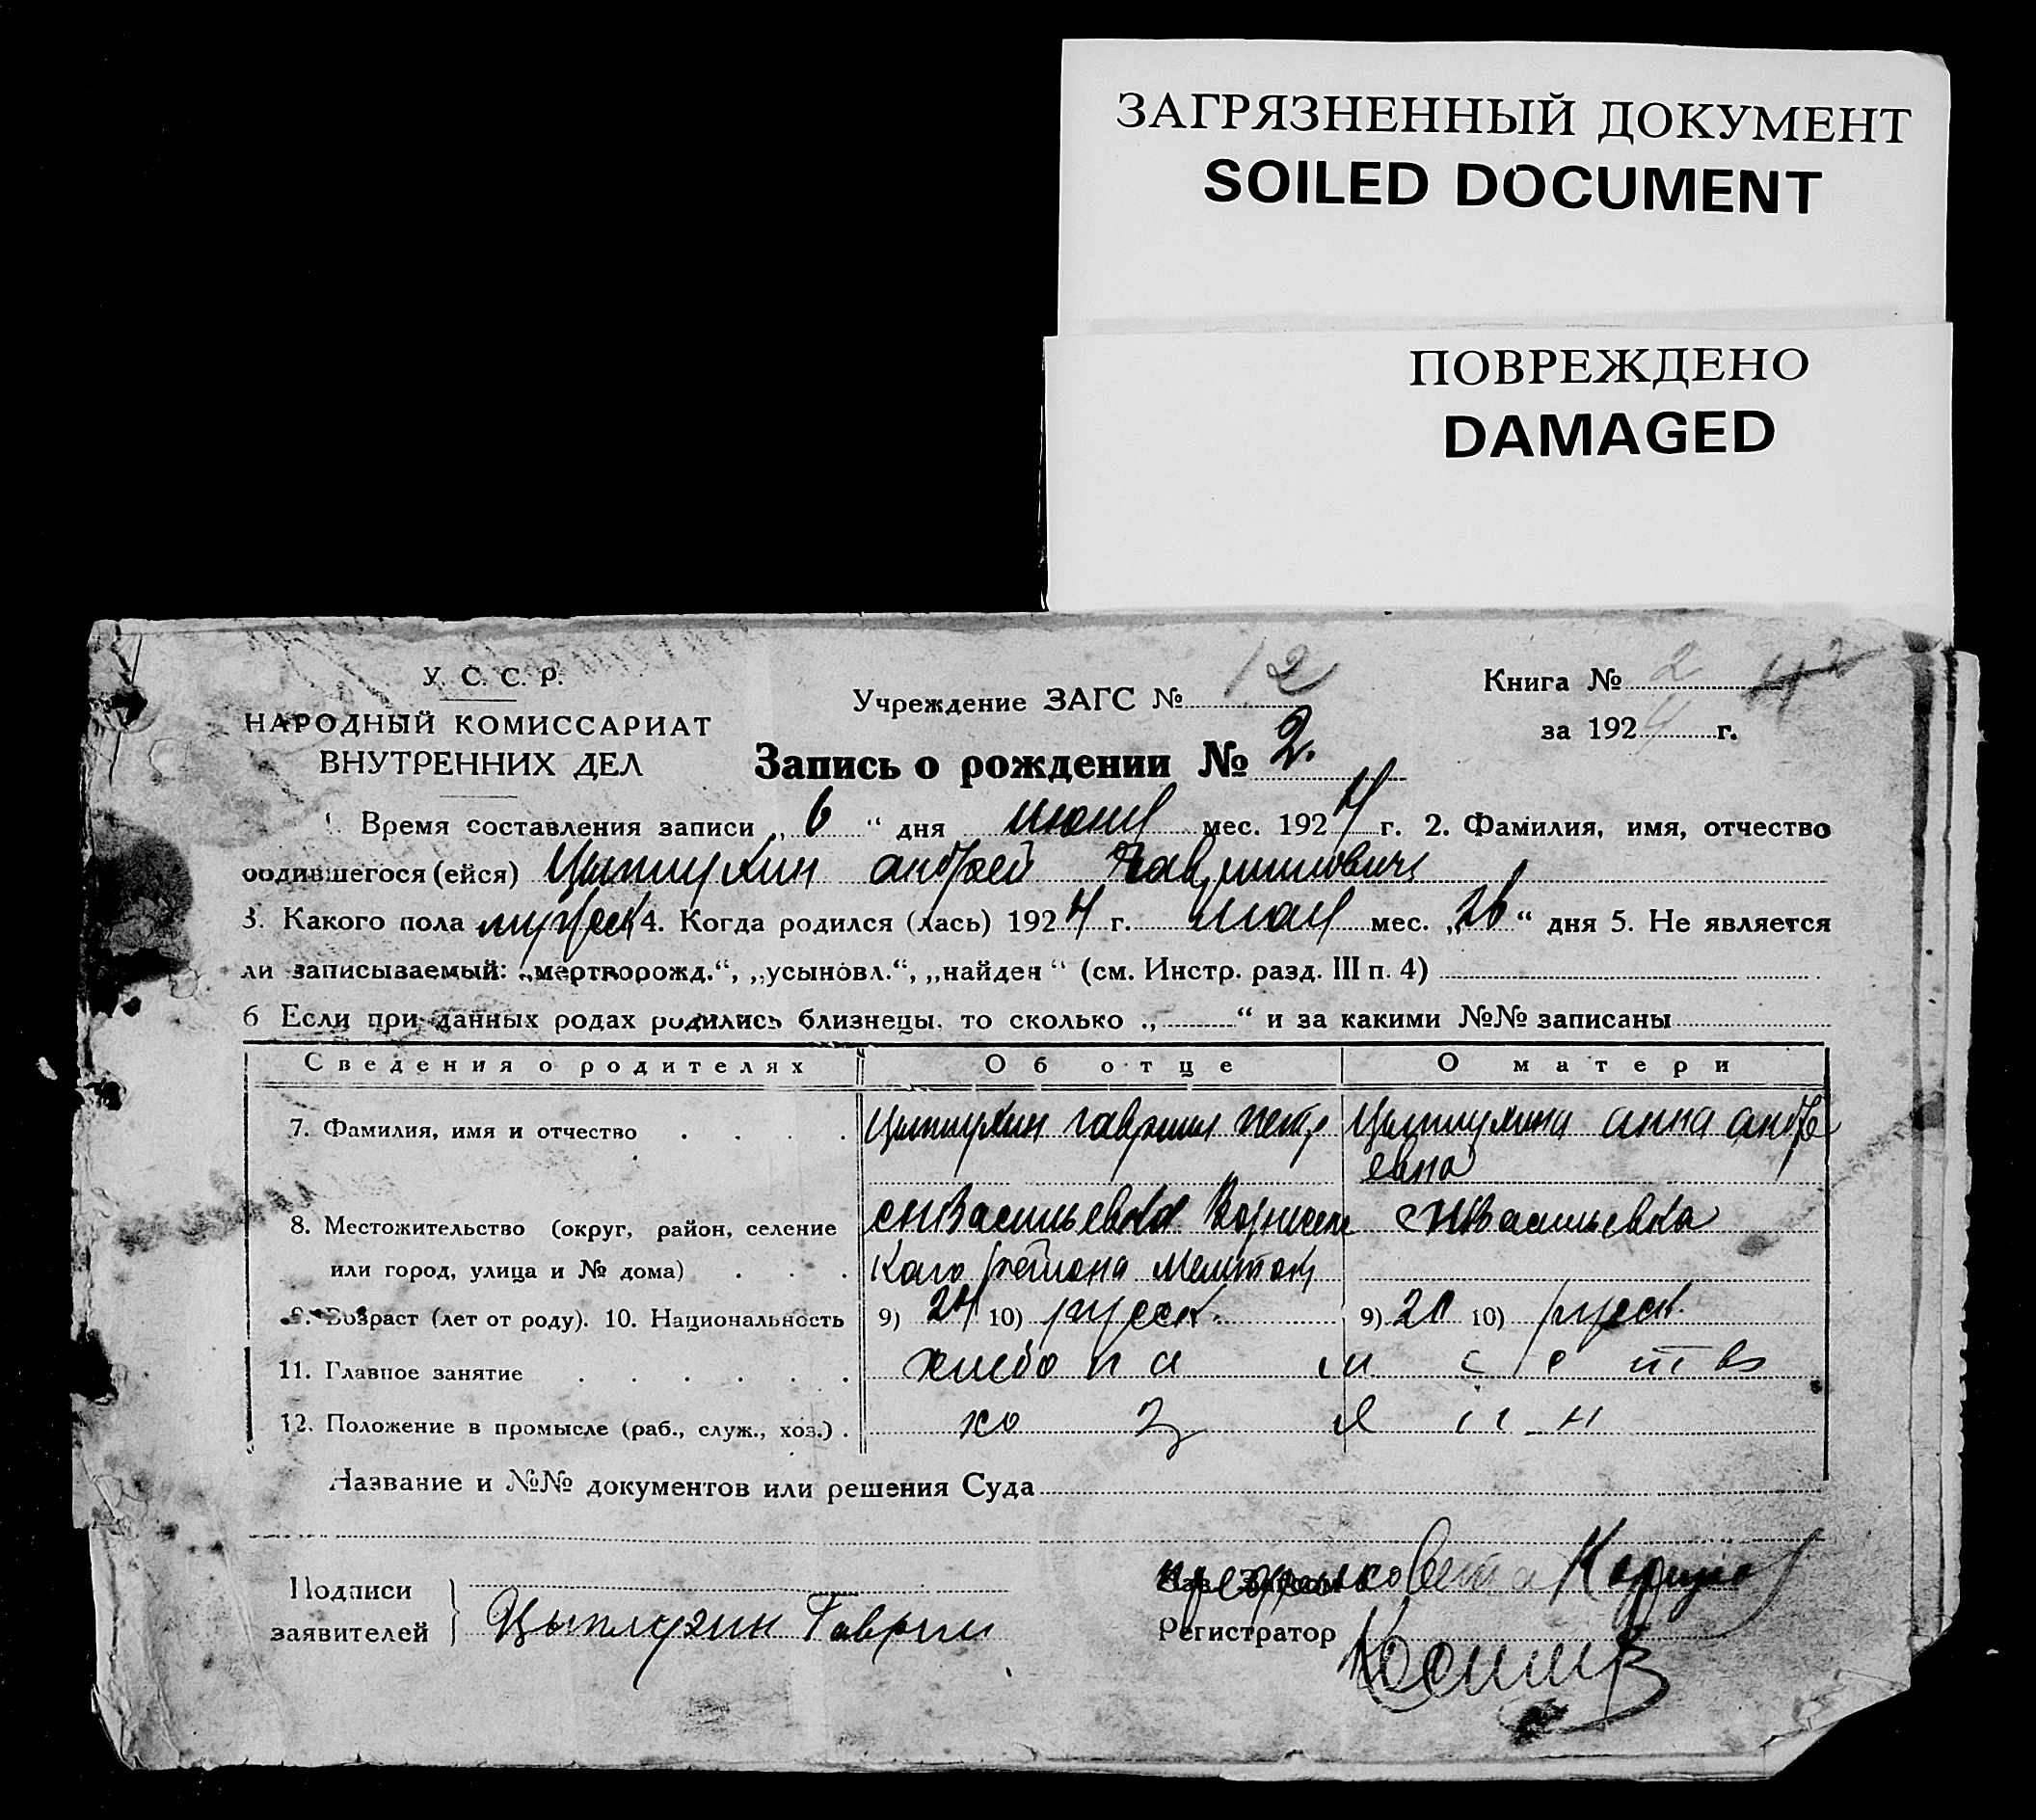 ЗАГРЯЗНЕННЫЙ ДОКУМЕНТ
SOILED DOCUMENT
ПОВРЕЖДЕНО
DAMAGED
У. С. С. Р.
НАРОДНЫЙ КОМИССАРИАТ
ВНУТРЕННИХ ДЕЛ
Учреждение ЗАГС № 12
Книга № 2
за 1924 г.
Запись о рождении № 2.
1. Время составления записи „ 6 “ дня июня мес. 1924 г. 2. Фамилия, имя, отчество
родившегося (ейся) Цыплухин андрей Гаврилович
3. Какого пола мужск 4. Когда родился (лась) 1924 г. мая мес. „26“ дня 5. Не является
ли записываемый: „мертворожд.“, „усыновл.“, „найден“ (см. Инстр. разд. III п. 4)
6 Если при данных родах родились близнецы, то сколько „ “ и за какими №№ записаны
Сведения о родителях Об отце О матери
7. Фамилия, имя и отчество Цыплухин гаврил петр Цыплухина анна андре
евна
8. Местожительство (округ, район, селение снВасильевка снВасильевка
или город, улица и № дома) кого района Мелитоп
9. Возраст (лет от роду). 10. Национальность 9) 24 10) русск. 9) 21 10) русск.
11. Главное занятие хлебопашество
12. Положение в промысле (раб., служ., хоз.) хозяин
Название и №№ документов или решения Суда
Подписи
заявителей Цыплухин Гаврил
Регистратор